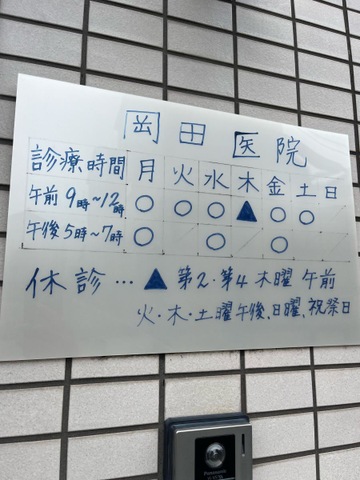 岡田 医院
診療時間 月 火 水 木 金 土 日
午前 9時〜12時 ○ ○ ○ ▲ ○ ○
午後 5時〜7時 ○ ○ ○
休診 … ▲ 第2・第4 木曜 午前
火・木・土曜午後、日曜、祝祭日
Panasonic